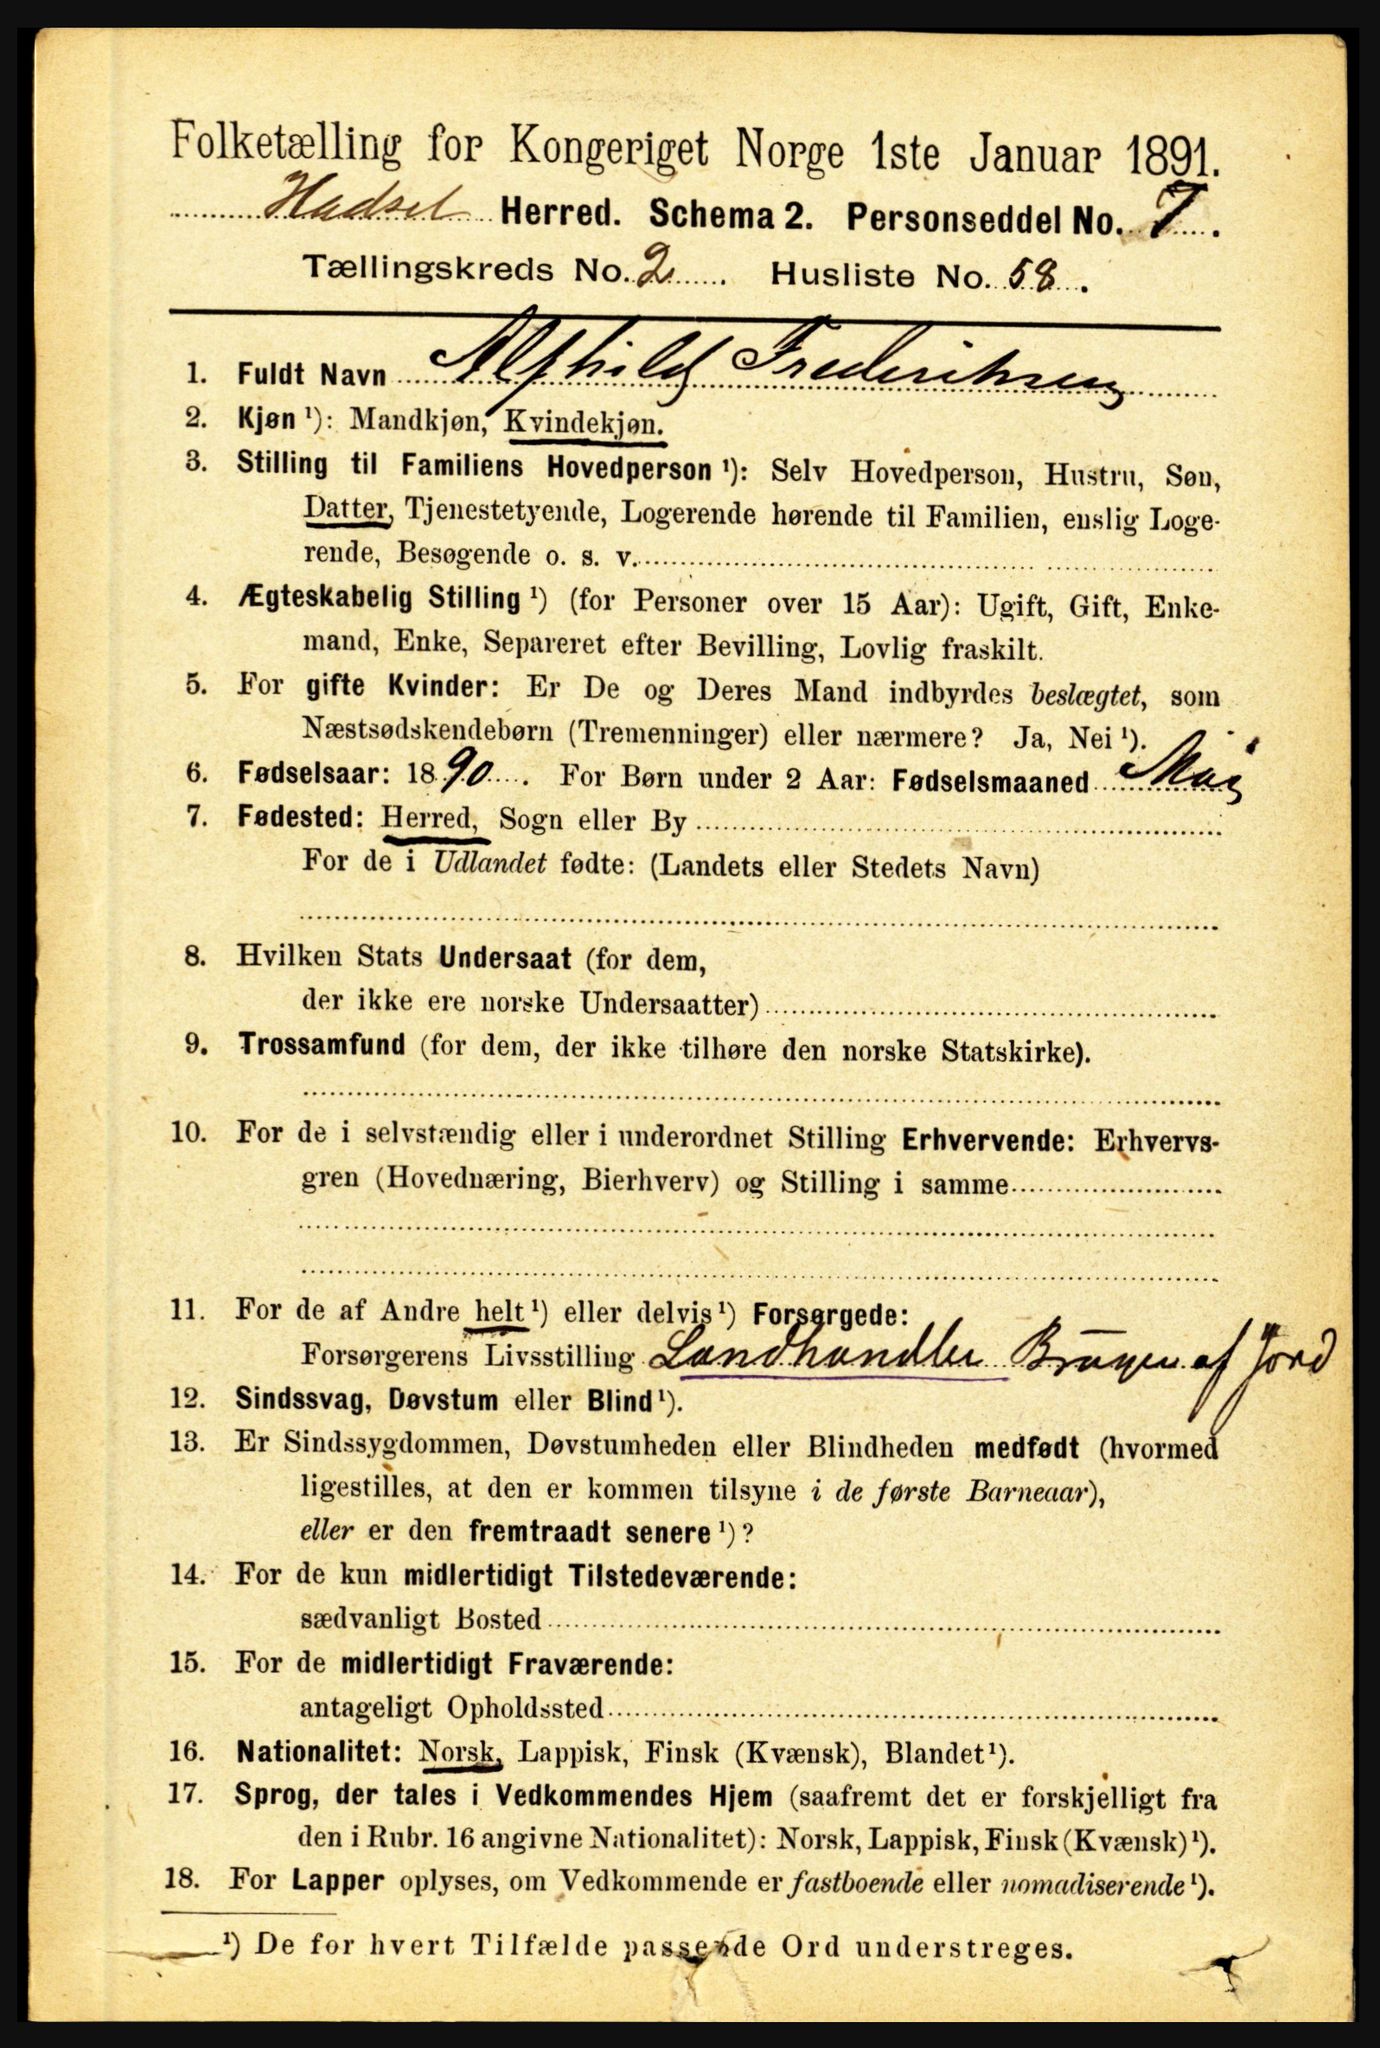 Folketælling for Kongeriget Norge 1ste Januar 1891.
Hadsel Herred. Schema 2. Personseddel No. 7.
Tællingskreds No. 2. Husliste No. 58.
1. Fuldt Navn Alfhild Frederiksen
2. Kjøn ¹): Mandkjøn, Kvindekjøn.
3. Stilling til Familiens Hovedperson ¹): Selv Hovedperson, Hustru, Søn,
Datter, Tjenestetyende, Logerende hørende til Familien, enslig Loge-
rende, Besøgende o. s. v.
4. Ægteskabelig Stilling ¹) (for Personer over 15 Aar): Ugift, Gift, Enke-
mand, Enke, Separeret efter Bevilling, Lovlig fraskilt.
5. For gifte Kvinder: Er De og Deres Mand indbyrdes beslægtet, som
Næstsødskendebørn (Tremenninger) eller nærmere? Ja, Nei ¹).
6. Fødselsaar: 1890. For Børn under 2 Aar: Fødselsmaaned Mai
7. Fødested: Herred, Sogn eller By
For de i Udlandet fødte: (Landets eller Stedets Navn)
8. Hvilken Stats Undersaat (for dem,
der ikke ere norske Undersaatter)
9. Trossamfund (for dem, der ikke tilhøre den norske Statskirke).
10. For de i selvstændig eller i underordnet Stilling Erhvervende: Erhvervs-
gren (Hovednæring, Bierhverv) og Stilling i samme
11. For de af Andre helt ¹) eller delvis ¹) Forsørgede:
Forsørgerens Livsstilling Landhandler Bruger af Jord
12. Sindssvag, Døvstum eller Blind ¹).
13. Er Sindssygdommen, Døvstumheden eller Blindheden medfødt (hvormed
ligestilles, at den er kommen tilsyne i de første Barneaar),
eller er den fremtraadt senere ¹)?
14. For de kun midlertidigt Tilstedeværende:
sædvanligt Bosted
15. For de midlertidigt Fraværende:
antageligt Opholdssted
16. Nationalitet: Norsk, Lappisk, Finsk (Kvænsk), Blandet ¹).
17. Sprog, der tales i Vedkommendes Hjem (saafremt det er forskjelligt fra
den i Rubr. 16 angivne Nationalitet): Norsk, Lappisk, Finsk (Kvænsk) ¹).
18. For Lapper oplyses, om Vedkommende er fastboende eller nomadiserende ¹).
¹) De for hvert Tilfælde passende Ord understreges.